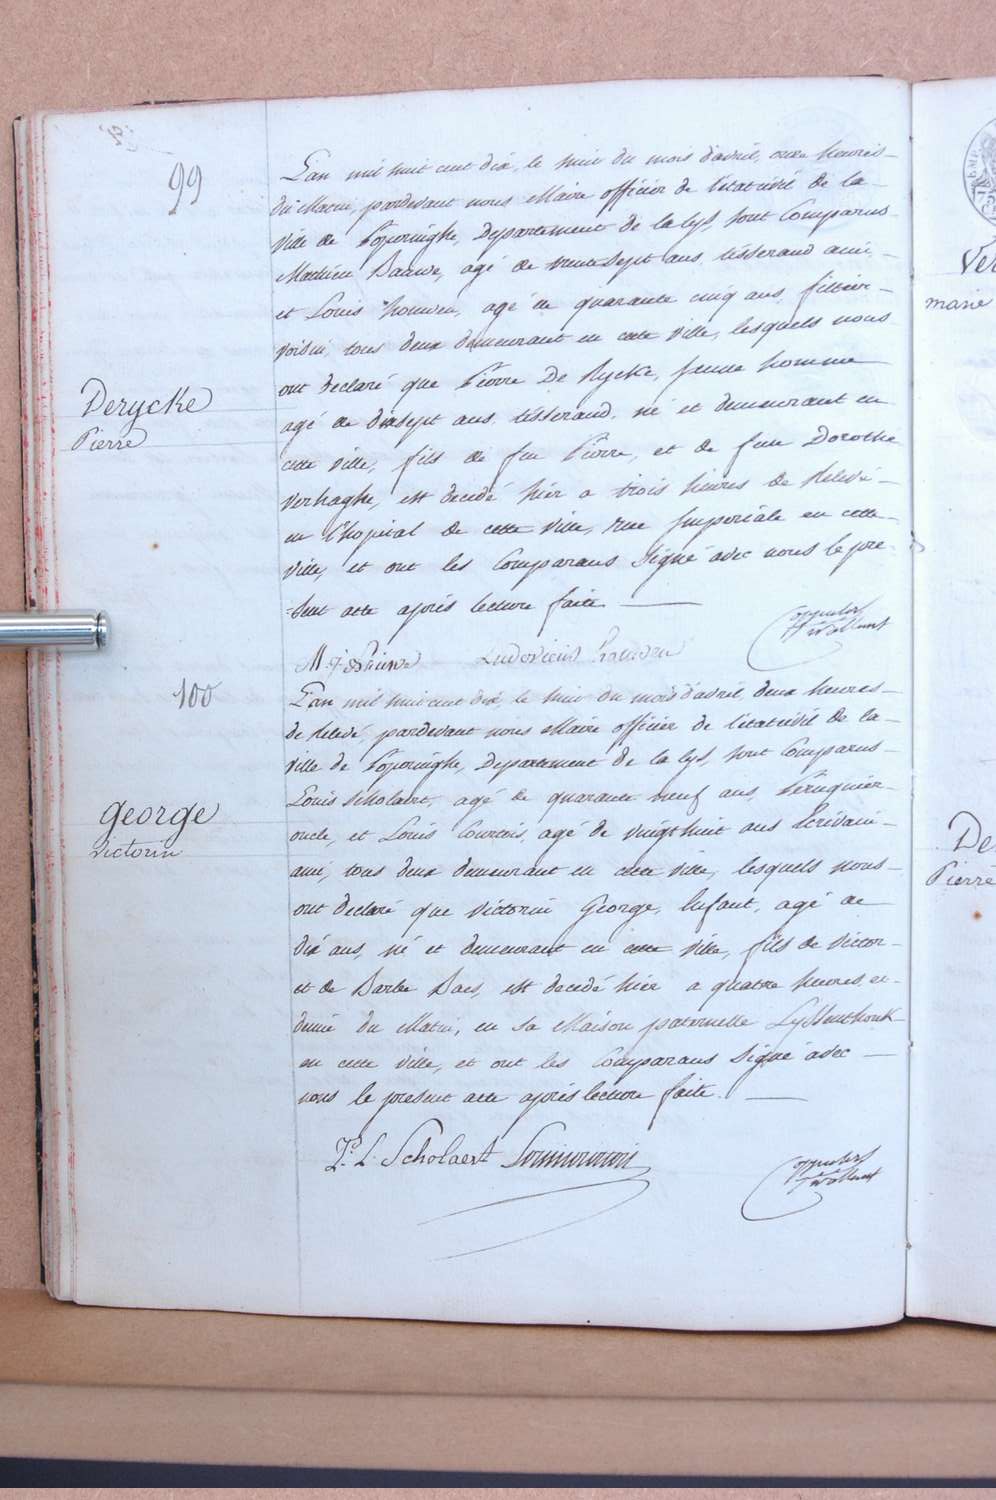 99
L'an mil huit cent dix, le huit du mois d'avril, onze heures
du Matin, pardevant nous Maire officier de l'etat civil de la
ville de Poperinghe, Departement de la lys, sont Comparus
Mathieu Bauwe, agé de trente sept ans, tisserand ami,
et Louis houwen, agé de quarante cinq ans,
voisin, tous deux demeurant en cette ville, lesquels nous
ont declaré que Pierre De Rycke, jeune homme
Derycke
Pierre
agé de dixsept ans, tisserand, né et demeurant en
cette ville, fils de feu Pierre, et de feue Dorothé
Verhaghe, est decedé hier a trois heures de Relevé
en l'hopital de cette ville, rue Imperiale en cette
ville, et ont les Comparans Signé avec nous le pre-
=sent acte après lecture faite.
Ludovicus houwen
100
L'an mil huit cent dix, le huit du mois d'avril deux heures
de relevé, pardevant nous Maire officier de l'etat civil de la
ville de Poperinghe, Departement de la lys, sont Comparus
Louis Scholaert, agé de quarante neuf ans, Peruquier
George
Victorin
oncle, et Louis Courtois, agé de vingthuit ans Ecrivain
ami, tous deux demeurant en cette ville, lesquels nous
ont declaré que Victorin George, Enfant, agé de
dix ans, né et demeurant en cette ville, fils de Victor
et de Barbe Baes, est decedé hier a quatre heures et
demie du Matin, en sa Maison paternelle
en cette ville, et ont les Comparans Signé avec
nous le present acte après lecture faite.
P. L. Scholaert
Ver
marie
De
Pierre